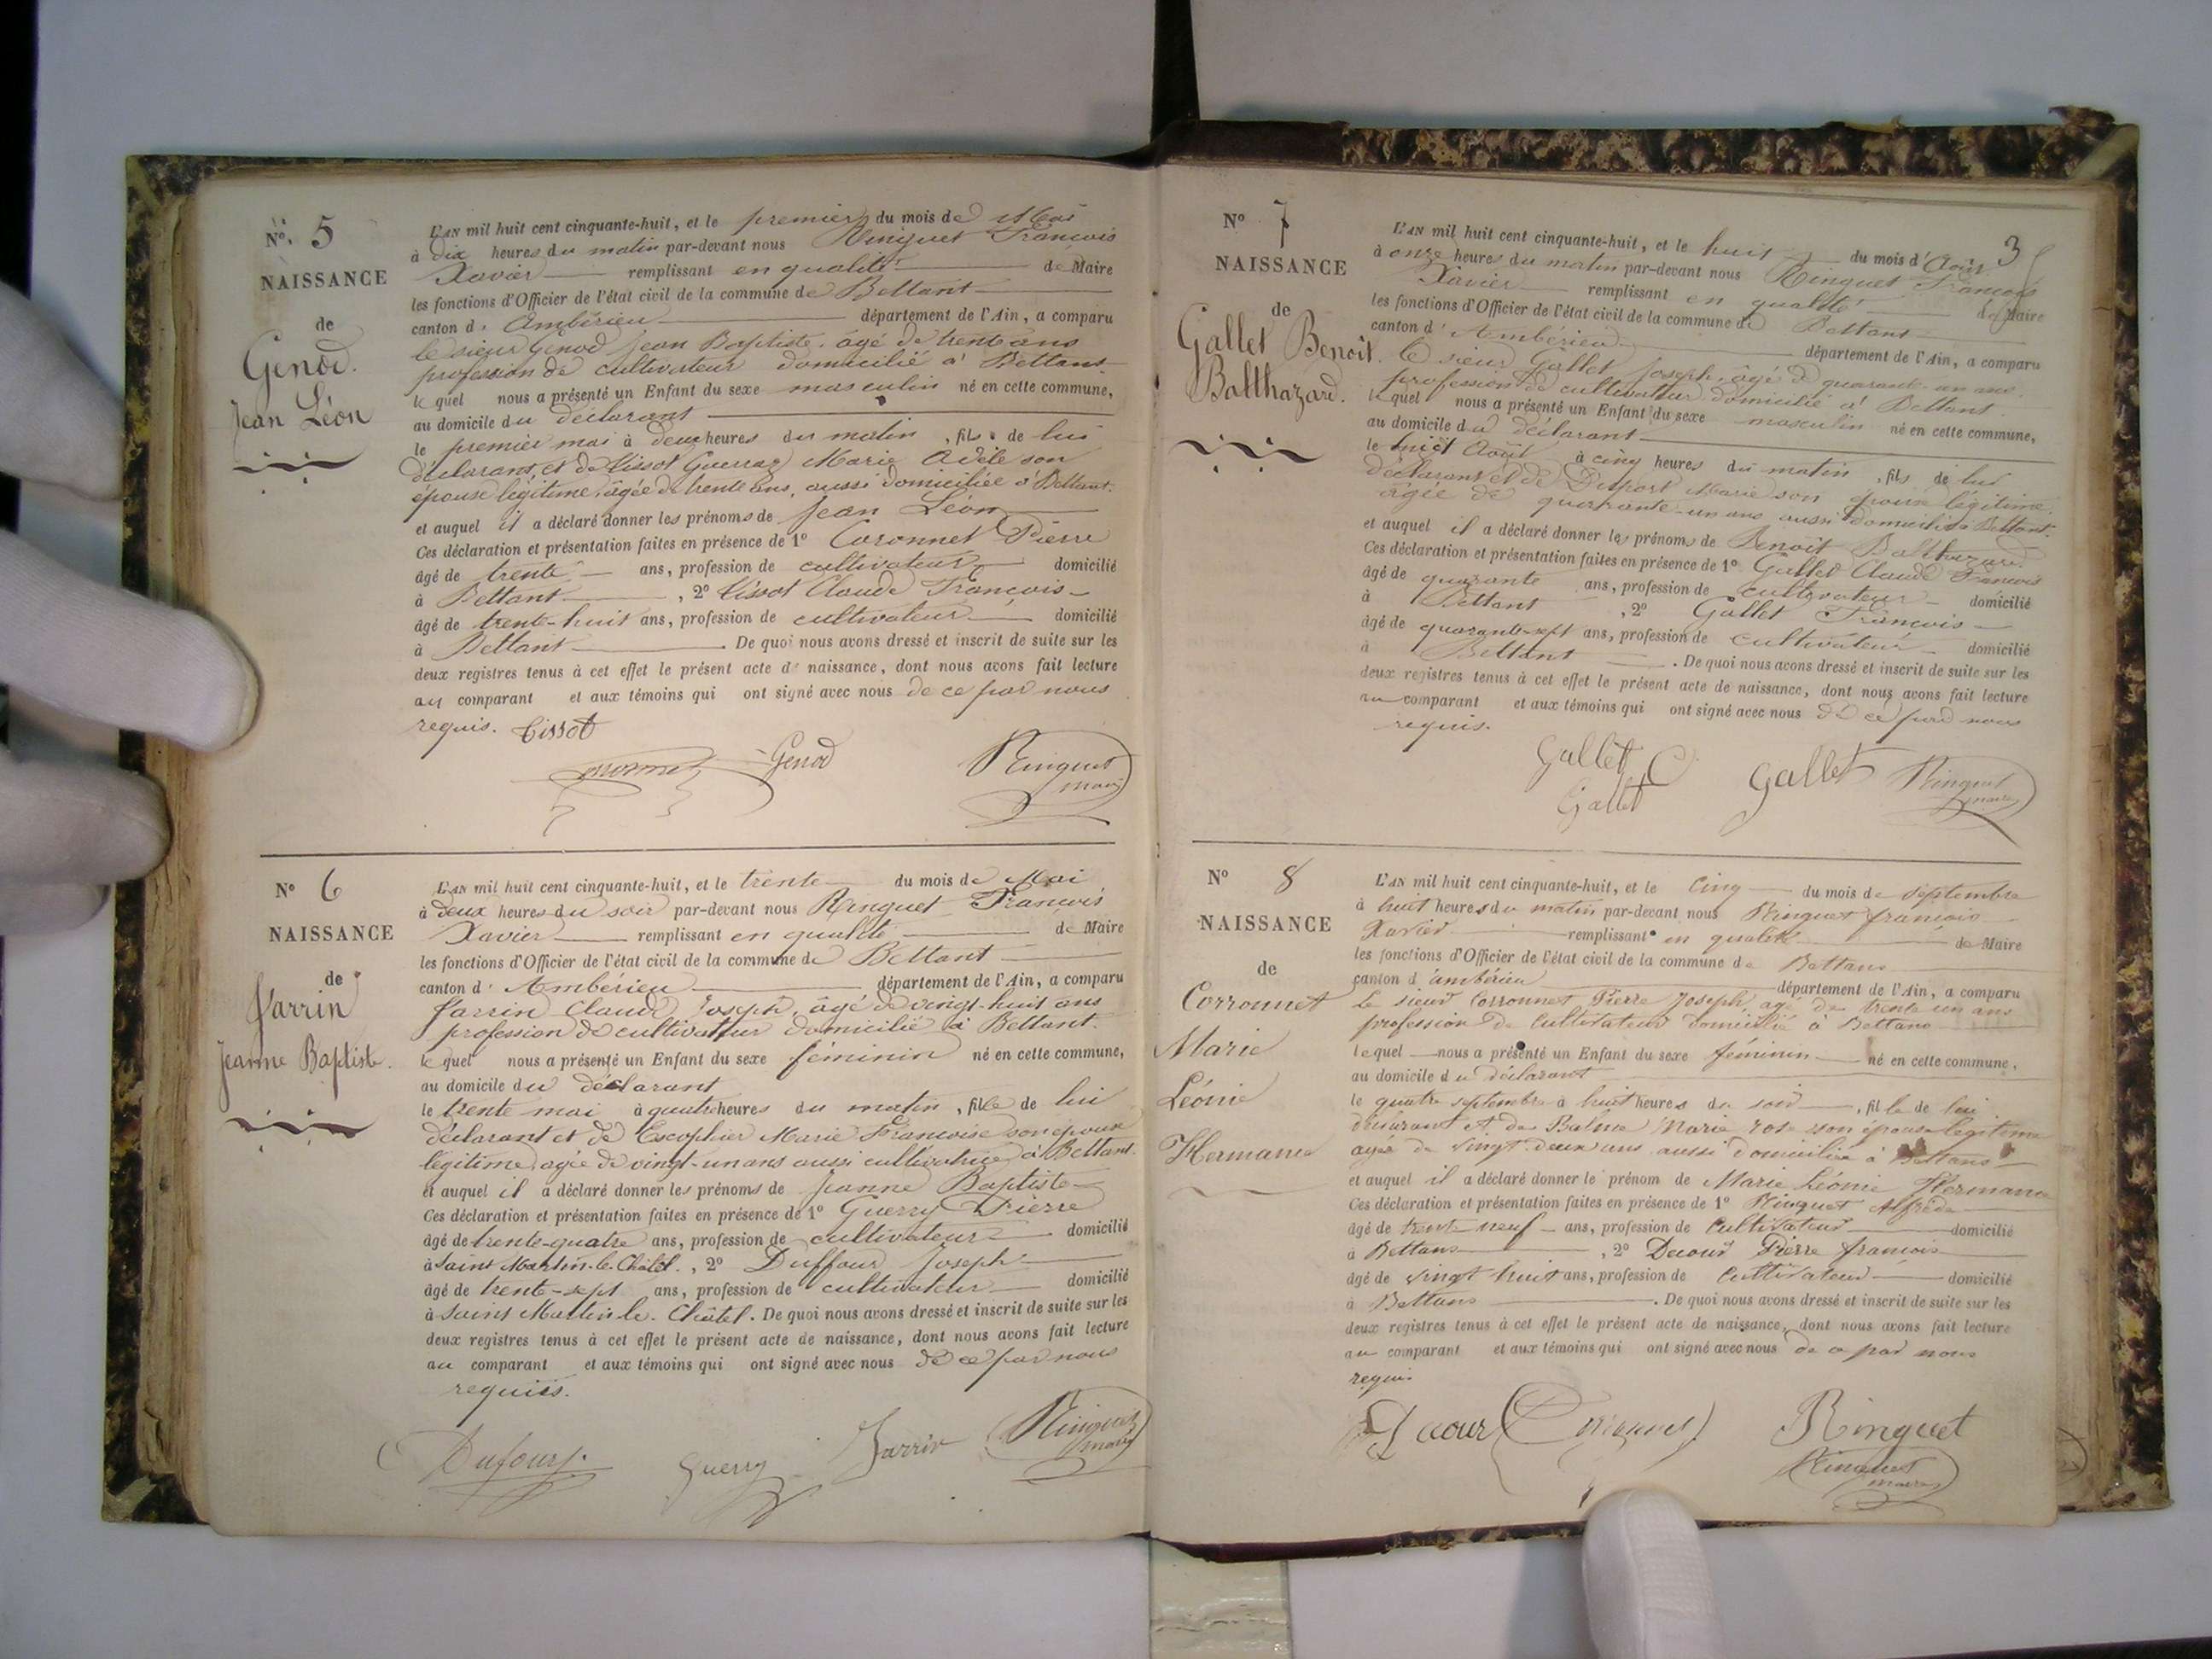 No. 5
NAISSANCE
de
Genod.
Jean Léon
L'AN mil huit cent cinquante-huit, et le premier du mois de Mai
à dix heures du matin par-devant nous Ringuet François
Xavier remplissant en qualité de Maire
les fonctions d'Officier de l'état civil de la commune de Bettant
canton d' Ambérieu département de l'Ain, a comparu
le sieur Genod Jean Baptiste, âgé de trente ans
profession de cultivateur domicilié à Bettant
lequel nous a présenté un Enfant du sexe masculin né en cette commune,
au domicile du déclarant
le premier mai à deux heures du matin, fils de lui
déclarant, et de Tissot Guerraz Marie Adèle son
épouse légitime, âgée de trente ans, aussi domiciliée à Bettant.
et auquel il a déclaré donner les prénoms de Jean Léon
Ces déclaration et présentation faites en présence de 1o Coronnet Pierre
âgé de trente ans, profession de cultivateur domicilié
à Bettant, 2o Tissot Claude François
âgé de trente-huit ans, profession de cultivateur domicilié
à Bettant. De quoi nous avons dressé et inscrit de suite sur les
deux registres tenus à cet effet le présent acte de naissance, dont nous avons fait lecture
au comparant et aux témoins qui ont signé avec nous de ce par nous
requis. Tissot
Genod Ringuet
maire
No 6
NAISSANCE
de
Jarrin
Jeanne Baptiste.
L'AN mil huit cent cinquante-huit, et le trente du mois de Mai
à deux heures du soir par-devant nous Ringuet François
Xavier remplissant en qualité de Maire
les fonctions d'Officier de l'état civil de la commune de Bettant
canton d' Ambérieu département de l'Ain, a comparu
Jarrin Claude Joseph, âgé de vingt-huit ans
profession de cultivateur domicilié à Bettant.
lequel nous a présenté un Enfant du sexe féminin né en cette commune,
au domicile du déclarant
le trente mai à quatre heures du matin, fille de lui
déclarant et de Escophier Marie Françoise son épouse
légitime, agée de vingt-un ans aussi cultivatrice à Bettant.
et auquel il a déclaré donner les prénoms de Jeanne Baptiste
Ces déclaration et présentation faites en présence de 1o Guerry Pierre
âgé de trente-quatre ans, profession de cultivateur domicilié
à Saint Martin-le-Châtel., 2o Duffour Joseph
âgé de trente-sept ans, profession de cultivateur domicilié
à Saint Martin-le-Châtel. De quoi nous avons dressé et inscrit de suite sur les
deux registres tenus à cet effet le présent acte de naissance, dont nous avons fait lecture
au comparant et aux témoins qui ont signé avec nous de ce par nous
requis.
Dufour J. Guerry Jarrin Ringuet
maire
3
No 7
NAISSANCE
de
Gallet Benoît
Balthazard.
L'AN mil huit cent cinquante-huit, et le huit du mois d'Août
à onze heures du matin par-devant nous Ringuet François
Xavier remplissant en qualité de Maire
les fonctions d'Officier de l'état civil de la commune de Bettant
canton d' Ambérieu département de l'Ain, a comparu
le sieur Gallet Joseph, âgé de quarante-un ans
profession de cultivateur domicilié à Bettant.
lequel nous a présenté un Enfant du sexe masculin né en cette commune,
au domicile du déclarant
le huit Août à cinq heures du matin, fils de lui
déclarant et de Marie son épouse légitime,
âgée de quarante-un ans aussi domiciliée à Bettant.
et auquel il a déclaré donner les prénoms de Benoît Balthazard.
Ces déclaration et présentation faites en présence de 1o Gallet Claude François
âgé de quarante ans, profession de cultivateur domicilié
à Bettant, 2o Gallet François
âgé de quarante-sept ans, profession de cultivateur domicilié
à Bettant. De quoi nous avons dressé et inscrit de suite sur les
deux registres tenus à cet effet le présent acte de naissance, dont nous avons fait lecture
au comparant et aux témoins qui ont signé avec nous de ce par nous
requis.
Gallet C Gallet Ringuet
Gallet maire
No 8
NAISSANCE
de
Corronnet
Marie
Léonie
Hermance
L'AN mil huit cent cinquante-huit, et le cinq du mois de septembre
à huit heures du matin par-devant nous Ringuet françois
Xavier remplissant en qualité de Maire
les fonctions d'Officier de l'état civil de la commune de Bettans
canton d'ambérieu département de l'Ain, a comparu
Le sieur Corronnet Pierre Joseph agé de trente un ans
profession de Cultivateur domicilié à Bettans
lequel nous a présenté un Enfant du sexe féminin né en cette commune,
au domicile du déclarant
le quatre septembre à huit heures du soir, fille de lui
déclarant et de Balme Marie rose son épouse légitime
agée de vingt deux ans aussi domiciliée à Bettans
et auquel il a déclaré donner le prénom de Marie Léonie Hermance
Ces déclaration et présentation faites en présence de 1o Ringuet Alfrède
âgé de trente neuf ans, profession de Cultivateur domicilié
à Bettans, 2o Decour Pierre françois
âgé de vingt huit ans, profession de Cultivateur domicilié
à Bettans. De quoi nous avons dressé et inscrit de suite sur les
deux registres tenus à cet effet le présent acte de naissance, dont nous avons fait lecture
au comparant et aux témoins qui ont signé avec nous de ce par nous
requis
Ringuet
Ringuet
maire